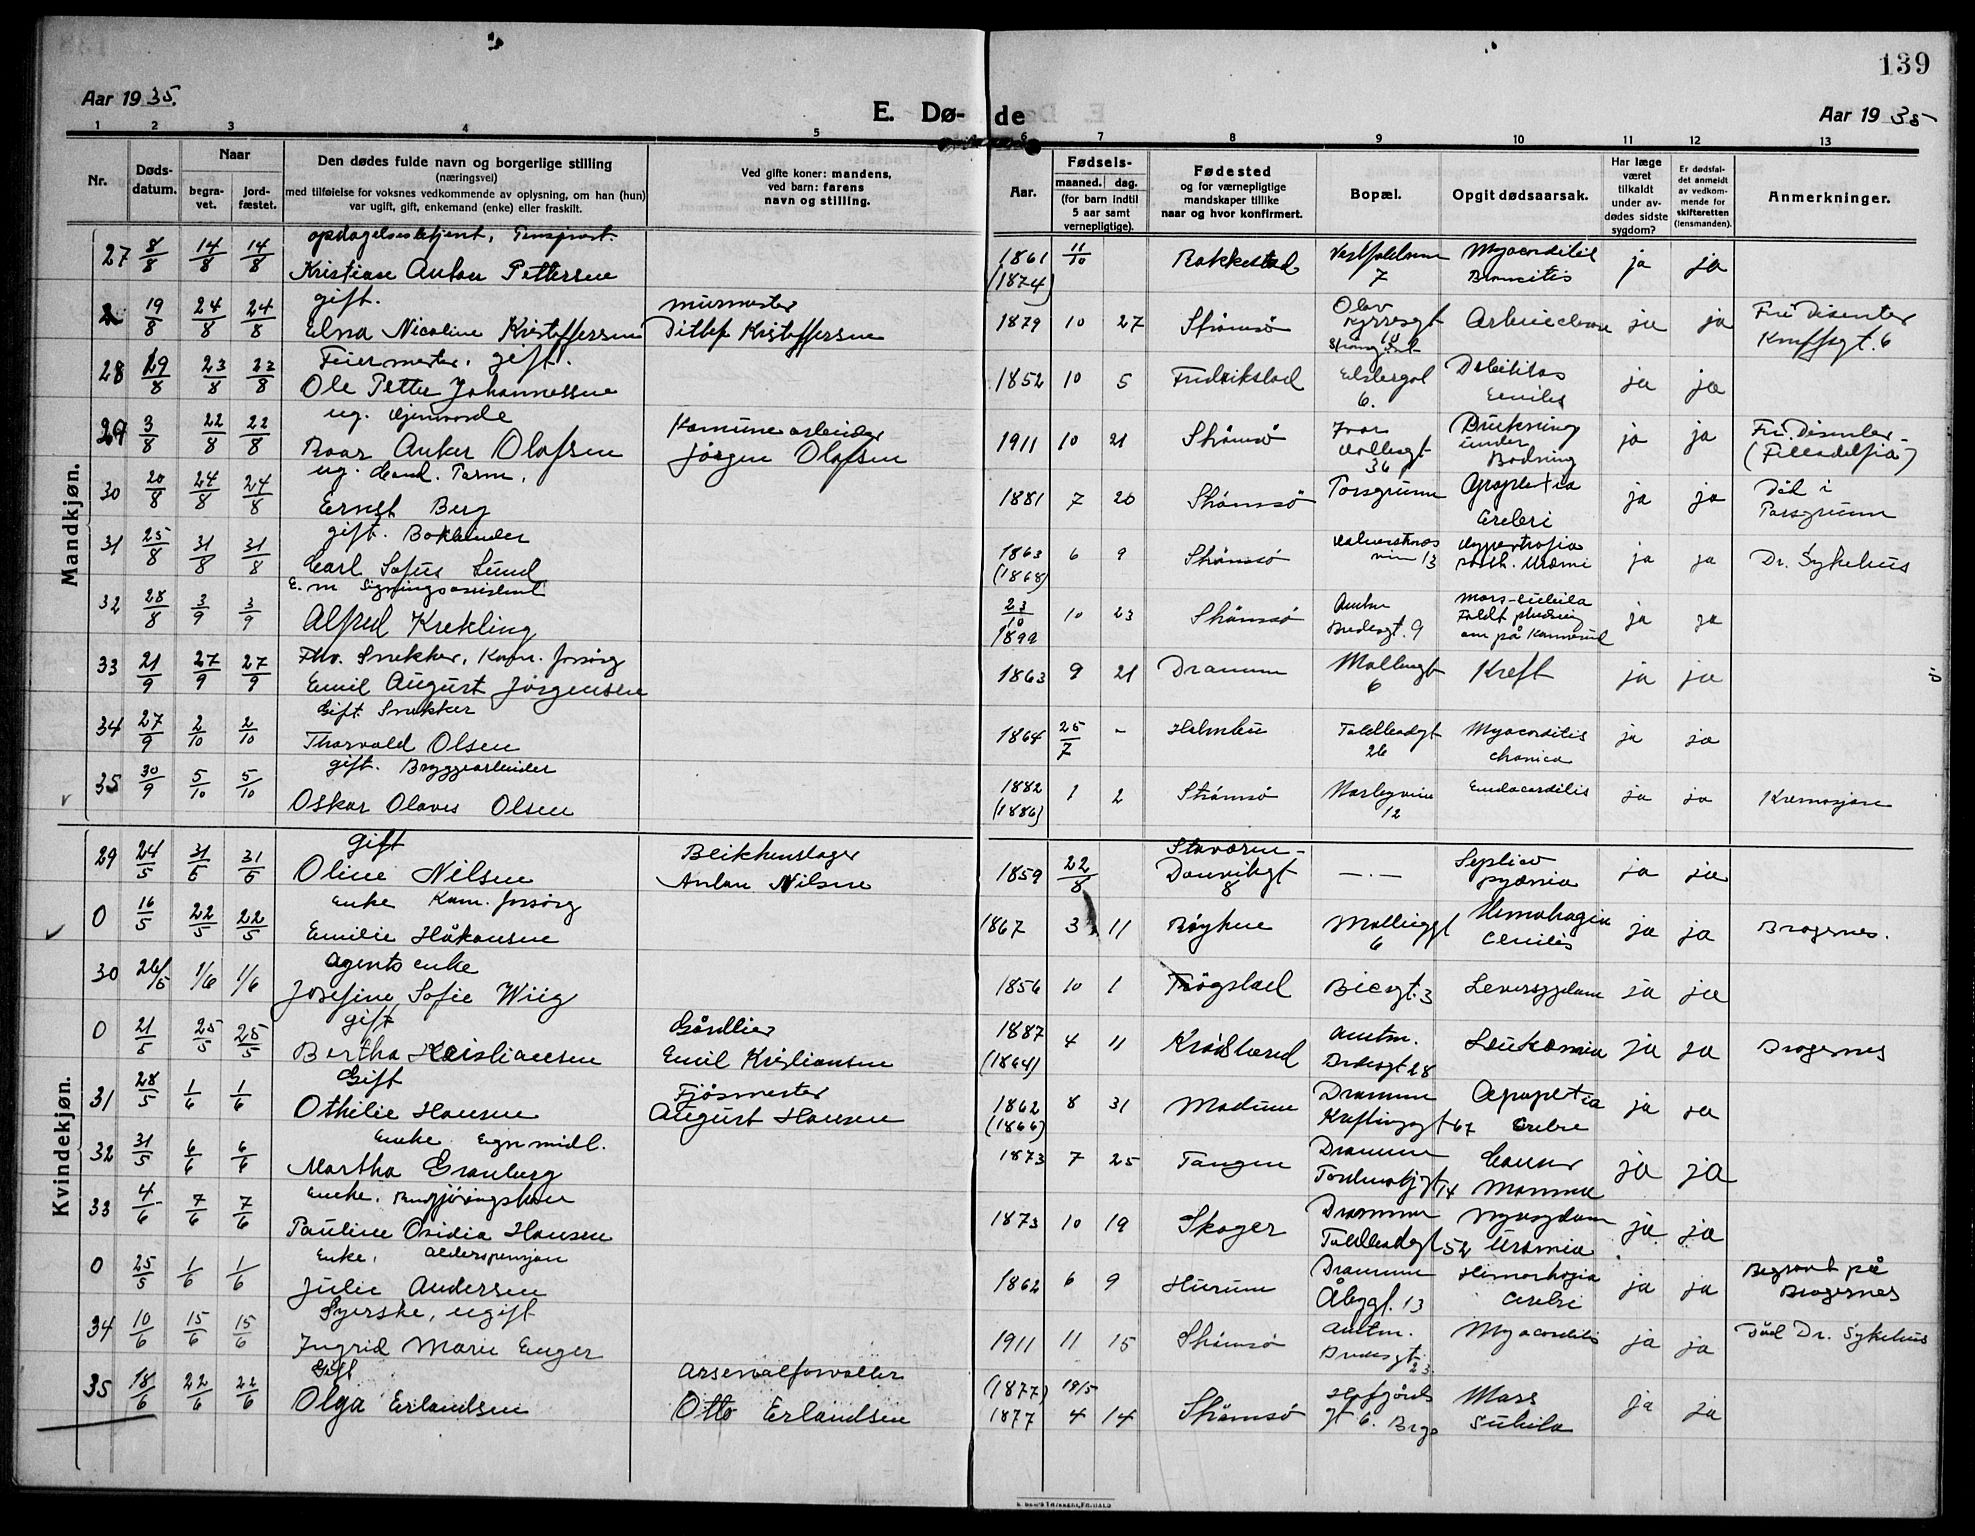 139
Aar 1935.
E. Dø-de
Aar 1935
1 2 3 4 5 6 7 8 9 10 11 12 13
Nr.
Døds-datum.
Naar
begra-vet.
jord-fæstet.
Den dødes fulde navn og borgerlige stilling
(næringsvei)
med tilføielse for voksnes vedkommende av oplysning, om han (hun)
var ugift, gift, enkemand (enke) eller fraskilt.
Ved gifte koner: mandens,
ved barn: farens
navn og stilling.
Aar.
Fødsels-
maaned. dag.
(for barn indtil
5 aar samt
vernepligtige).
Fødested
og for værnepligtige
mandskaper tillike
naar og hvor konfirmert.
Bopæl.
Opgit dødsaarsak.
Har læge
været
tilkaldt
under av-
dødes sidste
sygdom?
Er dødsfal-
det anmeldt
av vedkom-
mende for
skifteretten
(lensmanden).
Anmerkninger.
Mandkjøn.
27 8/8 14/8 14/8 opdagelsesbetjent,
Kristian Anton Pettersen 1861 (1874) 11/10 Rakkestad 7 Myocarditis ja ja
19/8 24/8 24/8 gift. murmester
Elna Nicoline Kristoffersen Ditlef Kristoffersen 1879 10 27 Strømsø Olav ja ja Fri Disenter
28 29/8 23/8 23/8 Feiermester. gift.
Ole Petter Johannessen 1852 10 5 Fredrikstad 6. ja ja
29 3/8 22/8 22/8 ug. Komunearbeider
Roar Anker Olafsen Jørgen Olafsen 1911 10 21 Strømsø Ivar 36 Drukning under Badning ja ja Fri. Disenter- (Filladelfia)
30 20/8 24/8 24/8 ug. Cand. Farm.
Ernst Berg 1881 7 20 Strømsø Porsgrunn Apoplexia Cerebri ja ja Död i Porsgrunn
31 25/8 31/8 31/8 gift. Bokbinder
Carl Sofus Lund 1863 (1868) 6 9 Strømsø 13 ja ja Dr. Sykehus
32 28/8 3/9 3/9 E.m
Alfred Krekling 23/10 1899 10 23 Strømsø 9 Mors subita ja ja
33 21/9 27/9 27/9 Snekker, Kom. forsörg
Emil August Jørgensen 1863 9 21 Drammen 6 Kreft ja ja
34 27/9 2/10 2/10 Gift Snekker
Thorvald Olsen 1864 25/7 - 26 Myocarditis chronica ja ja
35 30/9 5/10 5/10 gift. Bryggearbeider
Oskar Olaves Olsen 1882 (1886) 1 2 Strømsø 12 Endocarditis ja ja Kremasjon
Kvindekjøn.
29 24/5 31/5 31/5 gift Blikkenslager
Oline Nilsen Anton Nilsen 1859 22/8 Stavern - Danvikgt 8 —.— pyæmia ja ja
0 16/5 22/5 22/5 Enke Kom. forsörg
Emilie Håkonsen 1867 3 11 Røyken 6 ja ja Bragernes.
30 26/5 1/6 1/6 Agents enke
Josefine Sofie Wiig 1856 10 1 Trögstad 3 Leversygdom ja ja
0 21/5 25/5 25/5 gift Gårdeier
Bertha Kristiansen Emil Kristiansen 1887 (1864) 4 11 Krödsherad Amtm. Bredesgt 28 Leukæmia ja ja Bragernes
31 28/5 1/6 1/6 Gift Fjösmester
Othilie Hansen August Hansen 1862 (1866) 8 31 Modum Drammen Kreftingsgt 67 ja ja
32 31/5 6/6 6/6 Enke Egn midl.
Martha Granberg 1873 7 25 Tangen Drammen 14 Cancer Mamma ja ja
33 4/6 7/6 7/6 Enke, Rengjöringskone
Pauline Ovidia Hansen 1873 10 19 Skoger Drammen 52 Nyresygdom Uræmia ja ja
0 25/5 1/6 1/6 Enke, alderspensjon
Julie Andersen 1862 6 9 Hurum Drammen Åbygt. 13 Cerebri ja ja Begravet på Bragernes
34 10/6 15/6 15/6 Syerske, ugift
Ingrid Marie Enger 1911 11 15 Strømsø Amtm. Bredesgt 23 Myocarditis ja ja Död Dr. Sykehus
35 18/6 22/6 22/6 Gift Arsenalforvalter
Olga Erlandsen Otto Erlandsen (1877) 19/5 1877 4 14 Strømsø gt 6. Brgs Mors Subita ja ja